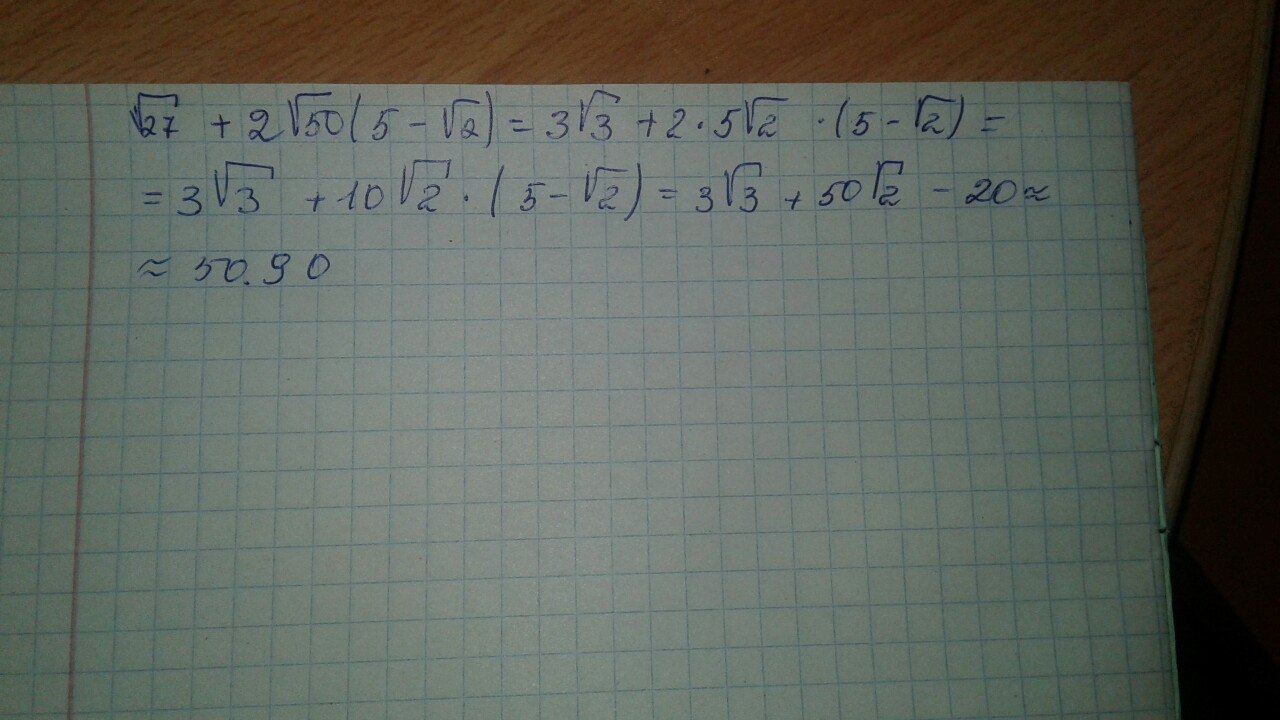 √27 + 2√50(5 - √2) = 3√3 + 2·5√2 ·(5 - √2) =
= 3√3 + 10√2·(5 - √2) = 3√3 + 50√2 - 20 ≈
≈ 50.90